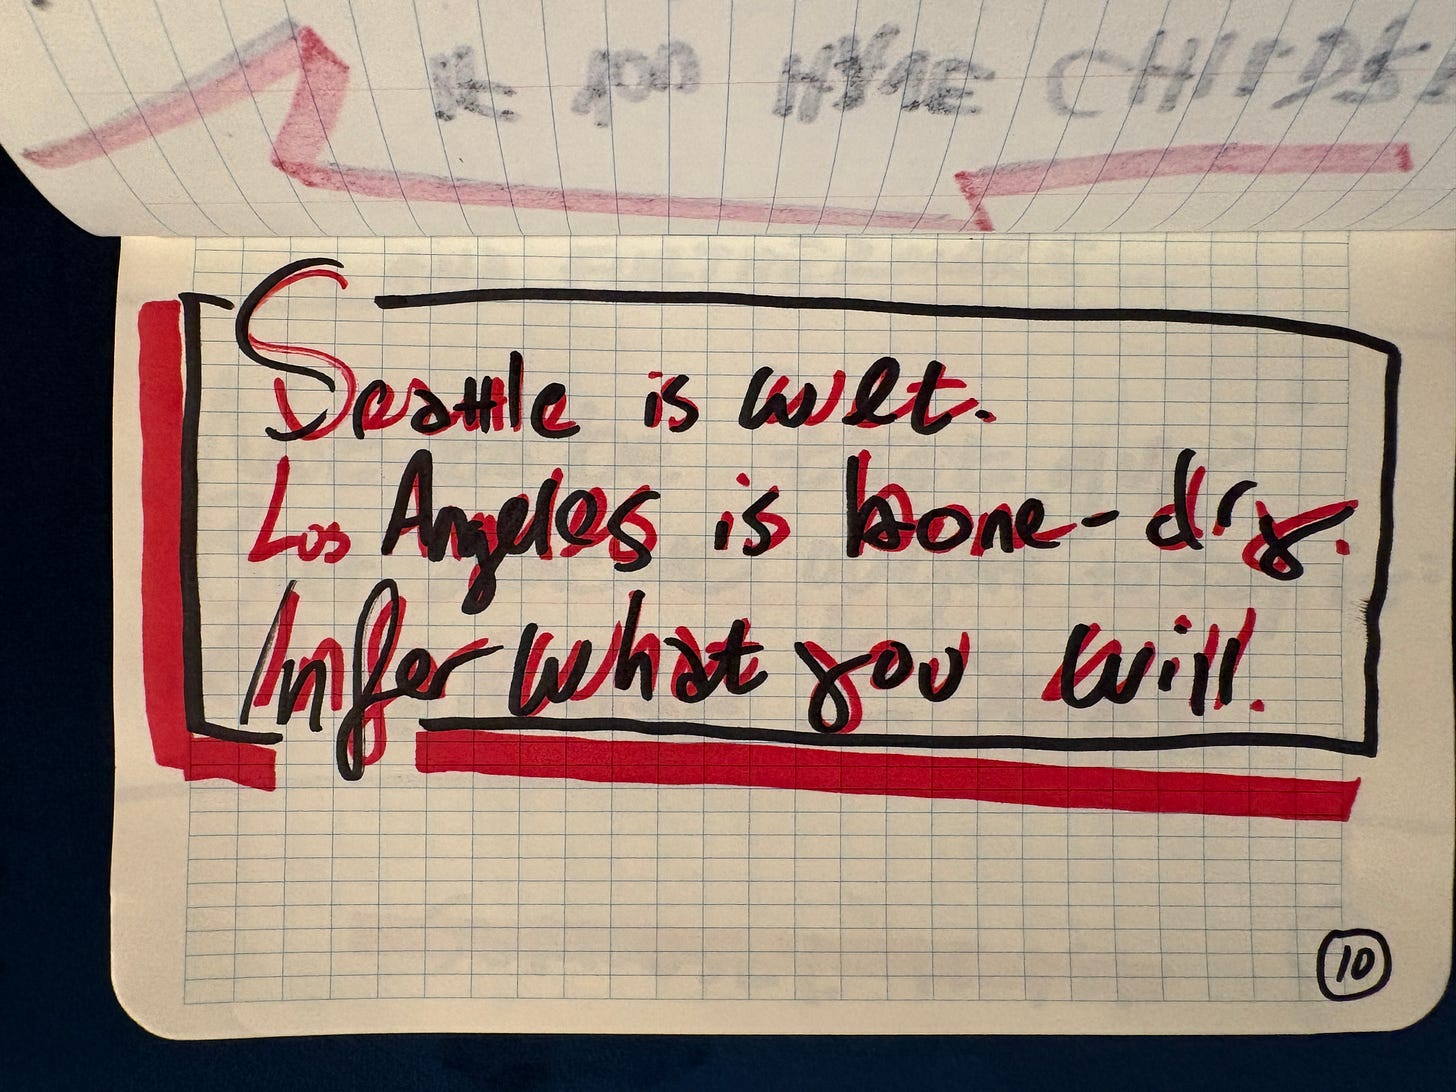 IF YOU HAVE CHILDRE
Seattle is wet.
Los Angeles is bone-dry.
Infer what you will.
10